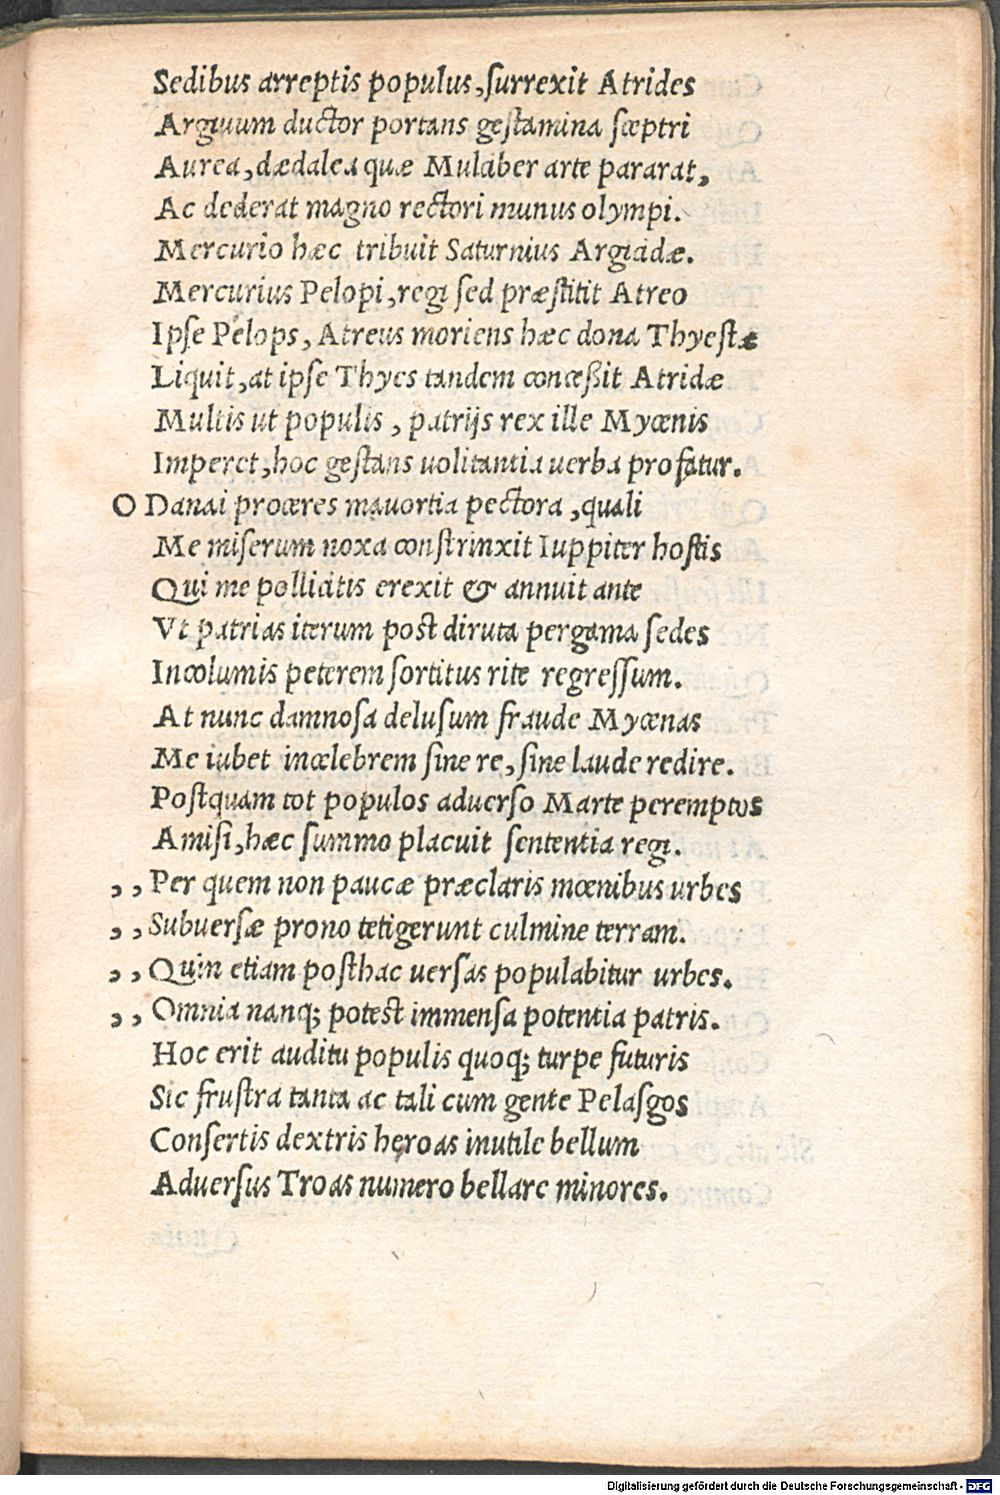 Sedibus arreptis populus, surrexit Atrides
Argiuum ductor portans gestamina sceptri
Aurea, dædalea quæ Mulciber arte pararat,
Ac dederat magno rectori munus olympi.
Mercurio hæc tribuit Saturnius Argicidæ.
Mercurius Pelopi, regi sed præstitit Atreo
Ipse Pelops, Atreus moriens hæc dona Thyestæ
Liquit, at ipse Thyes tandem conceßit Atridæ
Multis ut populis, patrijs rex ille Mycenis
Imperet, hoc gestans uolitantia uerba profatur.
O Danai proceres mauortia pectora, quali
Me miserum noxa constrinxit Iuppiter hostis
Qui me pollicitis erexit & annuit ante
Vt patrias iterum post diruta pergama sedes
Incolumis peterem sortitus rite regressum.
At nunc damnosa delusum fraude Mycenas
Me iubet incelebrem sine re, sine laude redire.
Postquam tot populos aduerso Marte peremptos
Amisi, hæc summo placuit sententia regi.
,, Per quem non paucæ præclaris mœnibus urbes
,, Subuersæ prono tetigerunt culmine terram.
,, Quin etiam posthac uersas populabitur urbes.
,, Omnia nanq; potest immensa potentia patris.
Hoc erit auditu populis quoq; turpe futuris
Sic frustra tanta ac tali cum gente Pelasgos
Consertis dextris heroas inutile bellum
Aduersus Troas numero bellare minores.
Digitalisierung gefördert durch die Deutsche Forschungsgemeinschaft - DFG